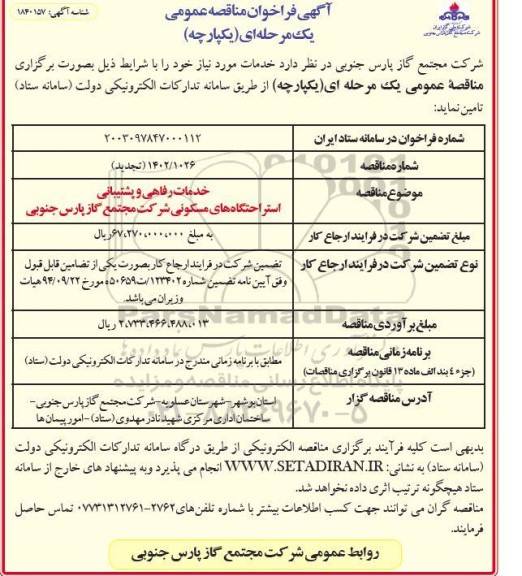 شناسه آگهی: ۱۸۴۰۱۵۷
آگهی فراخوان مناقصه عمومی
یک مرحله‌ای (یکپارچه)
شرکت مجتمع گاز پارس جنوبی در نظر دارد خدمات مورد نیاز خود را با شرایط ذیل بصورت برگزاری
مناقصهٔ عمومی یک مرحله ای(یکپارچه) از طریق سامانه تدارکات الکترونیکی دولت (سامانه ستاد)
تامین نماید:
شماره فراخوان در سامانه ستاد ایران
۲۰۰۳۰۹۷۸۴۷۰۰۰۱۱۲
شماره مناقصه
۱۴۰۲/۱۰۲۶ (تجدید)
موضوع مناقصه
خدمات رفاهی و پشتیبانی
استراحتگاه‌های مسکونی شرکت مجتمع گاز پارس جنوبی
مبلغ تضمین شرکت در فرایند ارجاع کار
به مبلغ ۶۷،۲۷۰،۰۰۰،۰۰۰ ریال
نوع تضمین شرکت در فرایند ارجاع کار
تضمین شرکت در فرایند ارجاع کار بصورت یکی از تضامین قابل قبول
وفق آیین نامه تضمین شماره ۱۲۳۴۰۲/ت۵۰۶۵۹ه مورخ ۹۴/۰۹/۲۲ هیات
وزیران می باشد.
مبلغ برآوردی مناقصه
۲،۷۳۳،۴۶۶،۴۸۸،۰۱۳ ریال
برنامه زمانی مناقصه
(جزء ٤ بند الف ماده ۱۳ قانون برگزاری مناقصات)
مطابق با برنامه زمانی مندرج در سامانه تدارکات الکترونیکی دولت (ستاد)
آدرس مناقصه گزار
استان بوشهر-شهرستان عسلویه-شرکت مجتمع گاز پارس جنوبی-
ساختمان اداری مرکزی شهید نادر مهدوی (ستاد)-امور پیمان ها
ParsNamadData
پایگاه اطلاع رسانی مناقصه و مزایده
۰۲۱-۸۸۳۴۹۶۷۰-۵
بدیهی است کلیه فرآیند برگزاری مناقصه الکترونیکی از طریق درگاه سامانه تدارکات الکترونیکی دولت
(سامانه ستاد) به نشانی: WWW.SETADIRAN.IR انجام می پذیرد و به پیشنهاد های خارج از سامانه
ستاد هیچگونه ترتیب اثری داده نخواهد شد.
مناقصه گران می توانند جهت کسب اطلاعات بیشتر با شماره تلفن‌های ۲۷۶۲-۰۷۷۳۱۳۱۲۷۶۱ تماس حاصل
فرمایند.
روابط عمومی شرکت مجتمع گاز پارس جنوبی